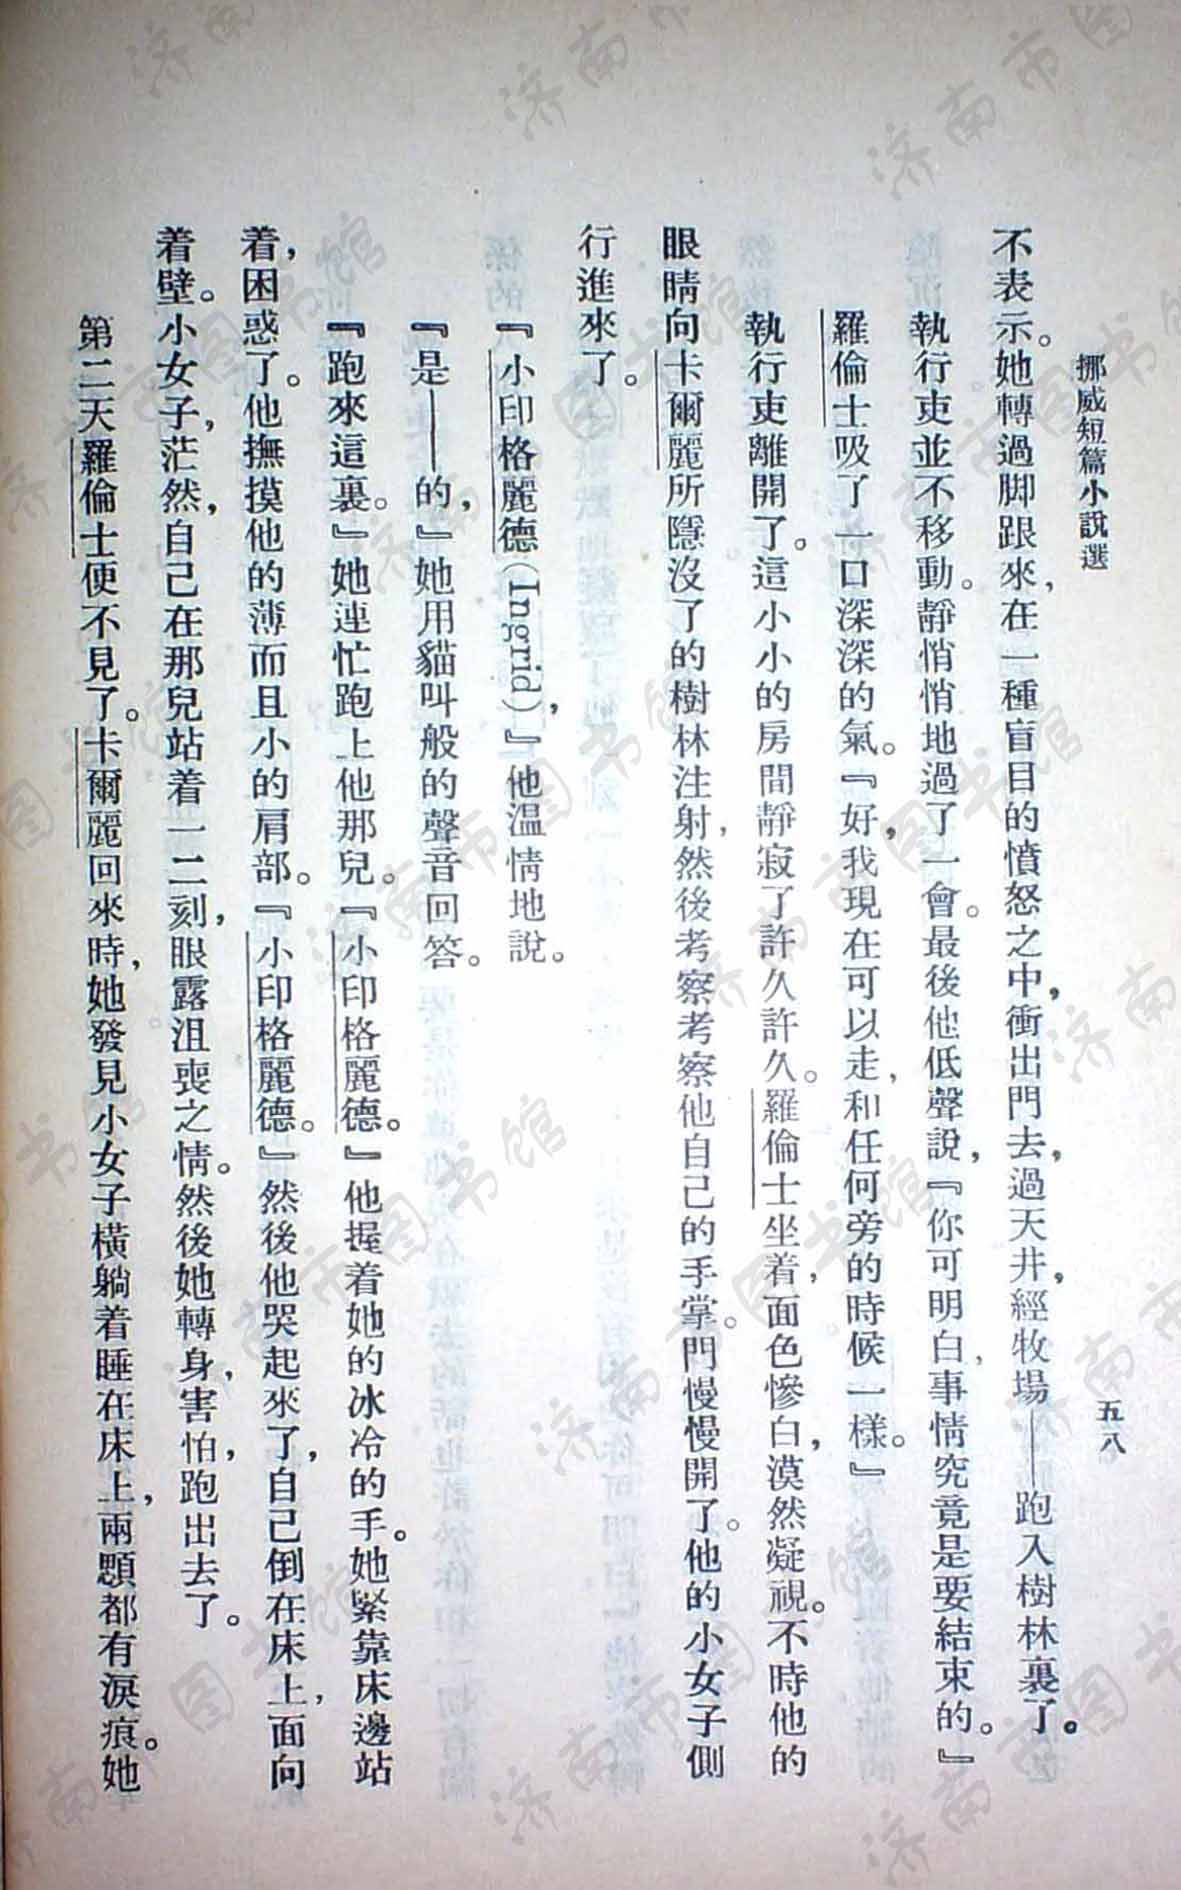 挪威短篇小說選
五八
不表示。她轉過脚跟來，在一種盲目的憤怒之中，衝出門去，過天井，經牧場——跑入樹林裏了。
執行吏並不移動。靜悄悄地過了一會。最後他低聲說，『你可明白，事情究竟是要結束的。』
羅倫士吸了一口深深的氣。『好，我現在可以走，和任何旁的時候一樣。』
執行吏離開了。這小小的房間靜寂了許久許久。羅倫士坐着，面色慘白，漠然凝視。不時他的
眼睛向卡爾麗所隱沒了的樹林注射，然後考察考察他自己的手掌。門慢慢開了。他的小女子側
行進來了。
『小印格麗德（Ingrid），』他溫情地說。
『是——的，』她用貓叫般的聲音回答。
『跑來這裏。』她連忙跑上他那兒。『小印格麗德。』他握着她的冰冷的手。她緊靠床邊站
着，困惑了。他撫摸他的薄而且小的肩部。『小印格麗德。』然後他哭起來了，自己倒在床上，面向
着壁。小女子，茫然，自己在那兒站着一二刻，眼露沮喪之情。然後她轉身，害怕，跑出去了。
第二天羅倫士便不見了。卡爾麗回來時，她發見小女子橫躺着睡在床上，兩顋都有淚痕。她
濟南市图书馆